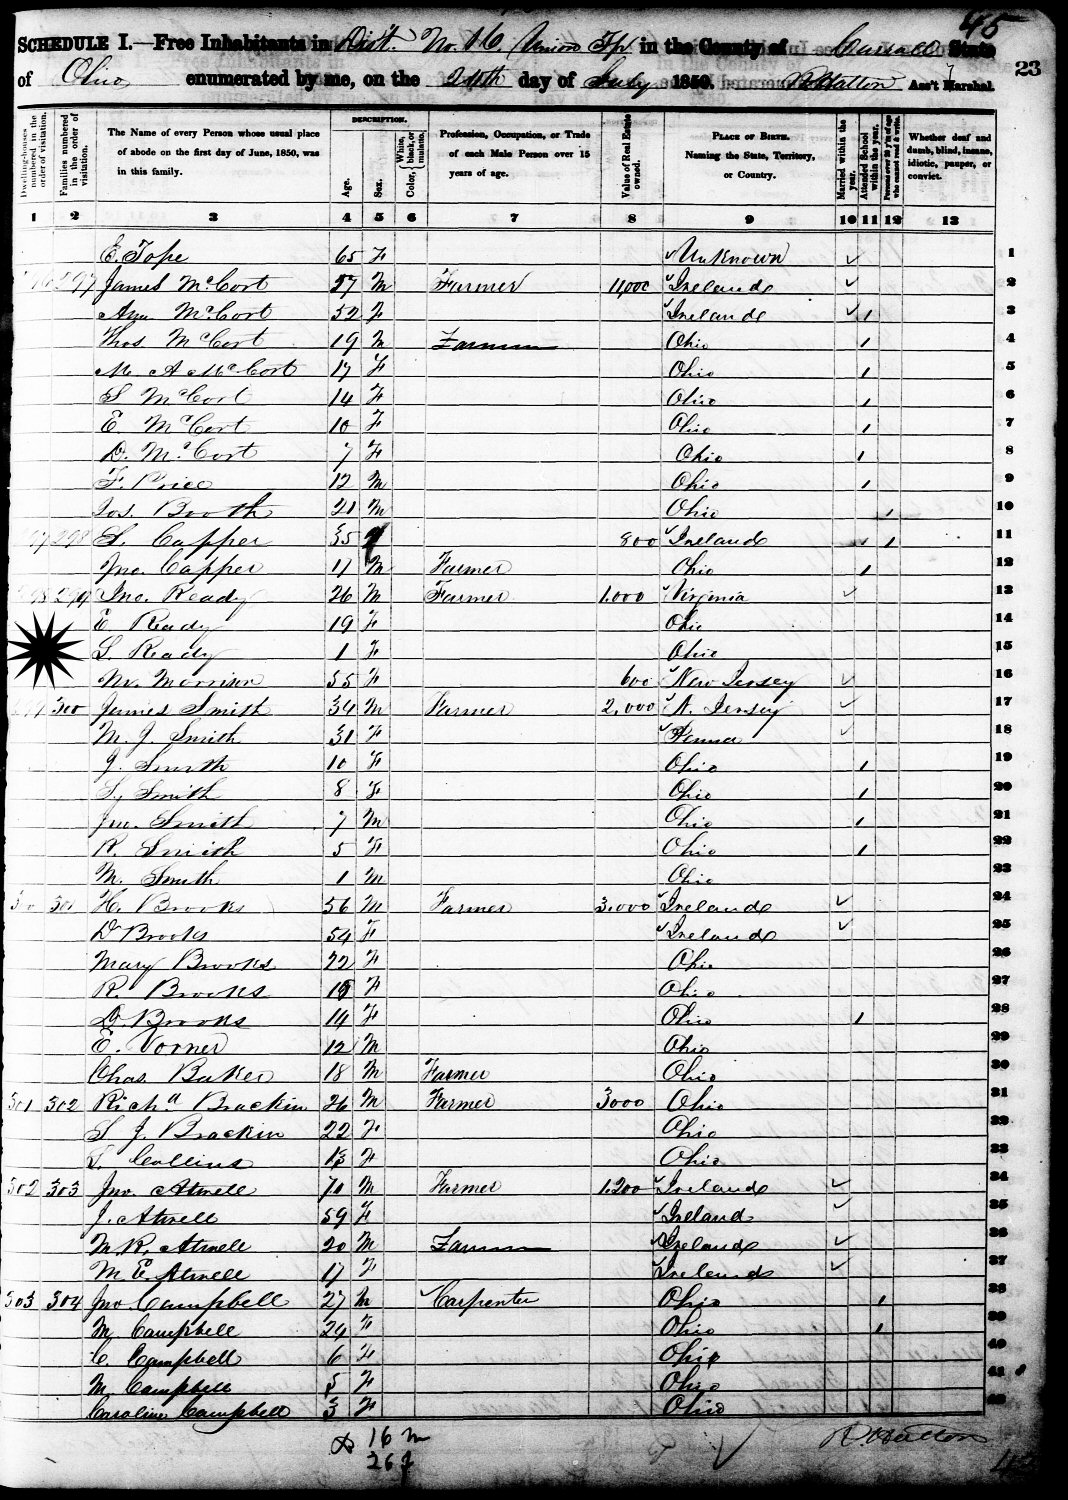 45
SCHEDULE I.—Free Inhabitants in Dist. No. 16 Union Tp in the County of Carroll State
of Ohio enumerated by me, on the 24th day of July 1850. R Hatton Ass't Marshal. 23
Dwelling-houses numbered in the order of visitation.
Families numbered in the order of visitation.
The Name of every Person whose usual place of abode on the first day of June, 1850, was in this family.
DESCRIPTION.
Age.
Sex.
Color, {White, black, or mulatto.
Profession, Occupation, or Trade of each Male Person over 15 years of age.
Value of Real Estate owned.
PLACE OF BIRTH. Naming the State, Territory, or Country.
Married within the year.
Attended School within the year.
Persons over 20 y'rs of age who cannot read & write.
Whether deaf and dumb, blind, insane, idiotic, pauper, or convict.
1 2 3 4 5 6 7 8 9 10 11 12 13
E. Tope 65 F ✓Unknown ✓ 1
297 James McCort 57 M Farmer 11,000 ✓Ireland ✓ 2
Ann McCort 52 F ✓Ireland ✓ 1 3
Thos McCort 19 M Farmer Ohio 1 4
M A McCort 17 F Ohio 1 5
S McCort 14 F Ohio 1 6
E McCort 10 F Ohio 1 7
D. McCort 7 F Ohio 1 8
F. Price 12 M Ohio 1 9
Jos. Booth 21 M Ohio 1 10
298 S. Capper 35 800 ✓Ireland 1 1 11
Jno. Capper 17 M Farmer Ohio 1 12
299 Jno. Ready 26 M Farmer 1.000 ✓Virginia ✓ 13
E Ready 19 F Ohio 14
S. Ready 1 F Ohio 15
Morrison 35 F 600 ✓New Jersey ✓ 16
300 James Smith 34 M Farmer 2,000 ✓N. Jersey ✓ 17
M. J. Smith 31 F ✓Penna ✓ 18
J. Smith 10 F Ohio 1 19
S. Smith 8 F Ohio 1 20
Jno. Smith 7 M Ohio 1 21
R. Smith 5 F Ohio 1 22
M. Smith 1 M Ohio 23
301 H. Brooks 56 M Farmer 3.000 ✓Ireland ✓ 24
D Brooks 54 F ✓Ireland ✓ 25
Mary Brooks 22 F Ohio 26
R. Brooks F Ohio 27
D. Brooks 14 F Ohio 1 28
E. Vorner 12 M Ohio 29
Chas. Baker 18 M Farmer Ohio 30
301 302 Richd Brackin 26 M Farmer 3000 Ohio 31
S J. Brackin 22 F Ohio 32
S. Collins 13 F Ohio 33
302 303 Jno. Atwell 70 M Farmer 1.200 ✓Ireland ✓ 34
J. Atwell 59 F ✓Ireland ✓ 35
M R. Atwell 20 M Farmer ✓Ireland ✓ 36
M. E. Atwell 17 F ✓Ireland ✓ 37
303 304 Jno Campbell 27 M ✓Carpenter Ohio 1 38
M Campbell 24 F Ohio 1 39
C. Campbell 6 F Ohio 40
M. Campbell 5 F Ohio 41
Caroline Campbell 3 F Ohio 42
16 m
26 f
R. Hatton